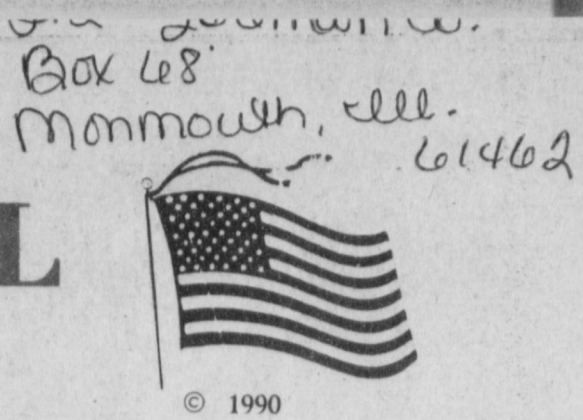 Box 68
Monmouth, Ill.
61462
L
© 1990